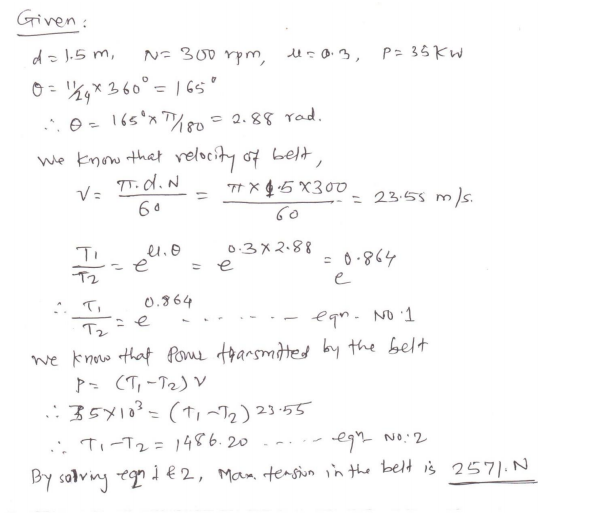 Given :
d = 1.5 m, N = 300 rpm, μ = 0.3, P = 35 KW
θ = 11/24 × 360° = 165°
∴ θ = 165° × π/180 = 2.88 rad.
We know that velocity of belt,
V = π.d.N / 60 = π × 1.5 × 300 / 60 = 23.55 m/s.
T1/T2 = e^μ.θ = e^0.3×2.88 = e^0.864
∴ T1/T2 = e^0.864 - - - - - - - eqn. No 1
We know that Power transmitted by the belt
P = (T1 - T2) V
∴ 35×10^3 = (T1 - T2) 23.55
∴ T1 - T2 = 1486.20 - - - - - eqn No: 2
By solving eqn 1 & 2, Max. tension in the belt is 2571. N